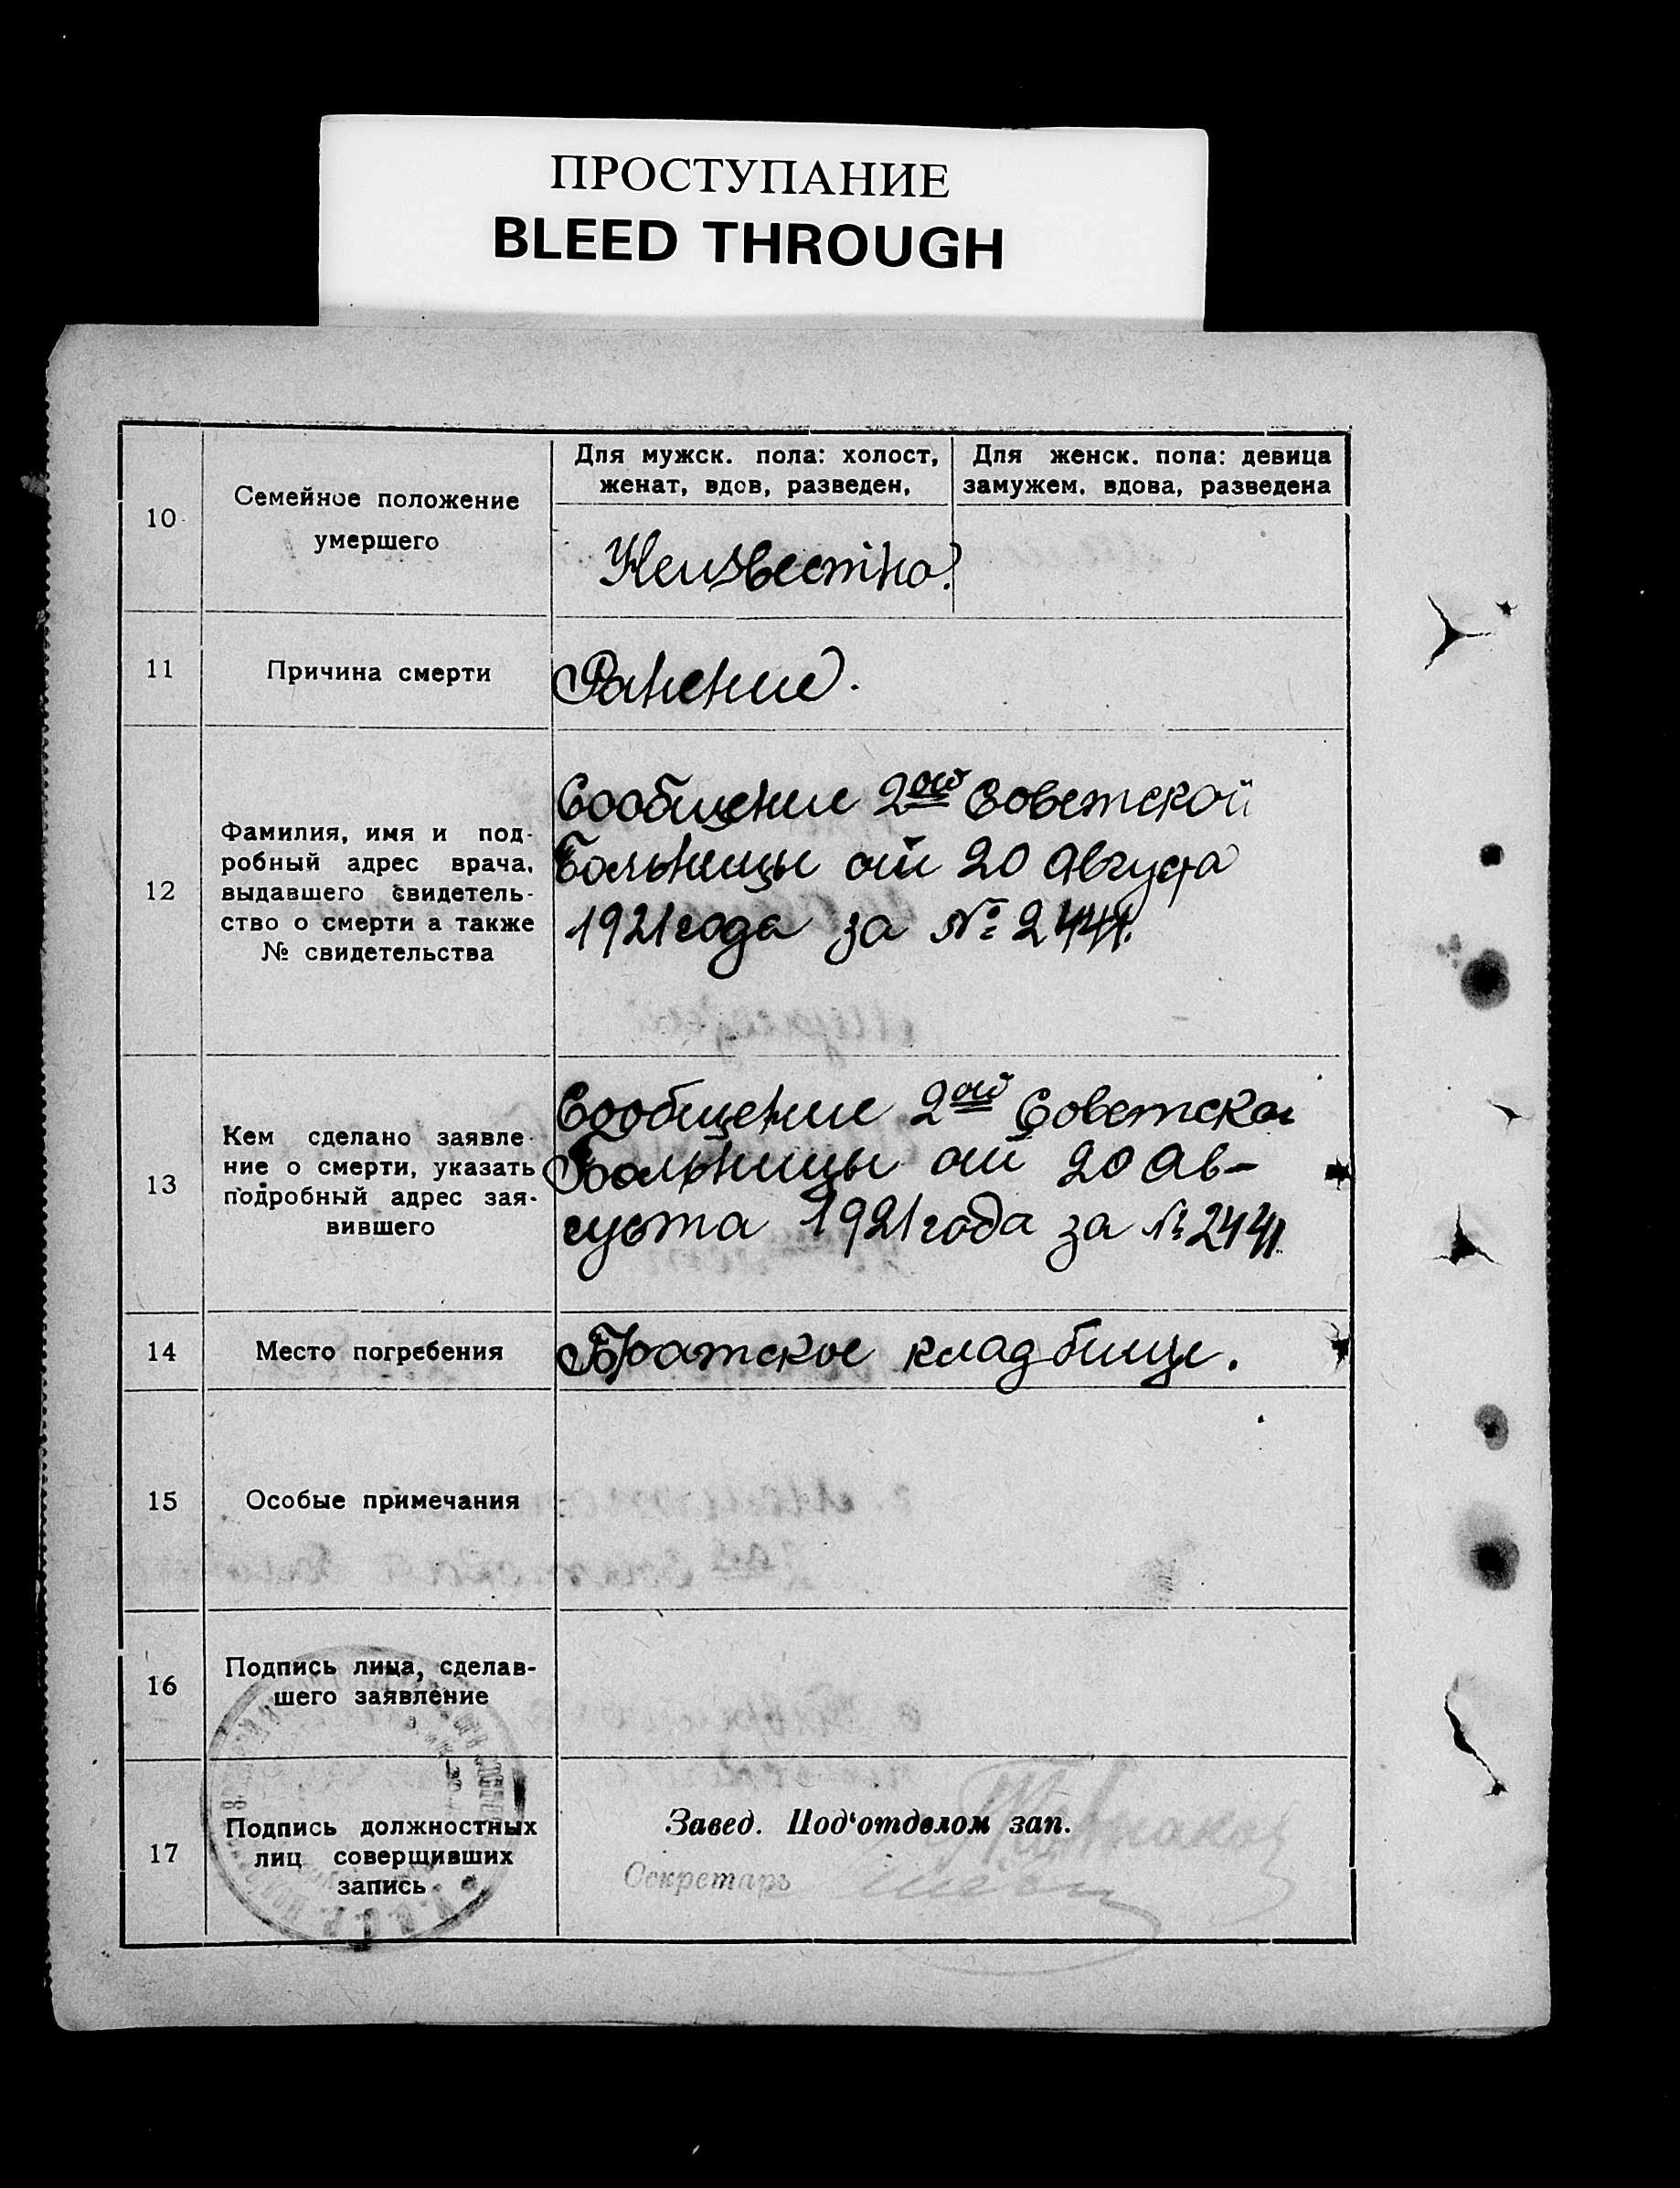 ПРОСТУПАНИЕ
BLEED THROUGH
10
Семейное положение
умершего
Для мужск. пола: холост,
женат, вдов, разведен,
Для женск. пола: девица
замужем, вдова, разведена
Неизвестно.
11
Причина смерти
Ранение.
12
Фамилия, имя и под-
робный адрес врача,
выдавшего свидетель-
ство о смерти а также
№ свидетельства
Сообщение 2ой Советской
Больницы от 20 Августа
1921 года за № 2441.
13
Кем сделано заявле-
ние о смерти, указать
подробный адрес зая-
вившего
Сообщение 2ой Советской
Больницы от 20 Ав-
густа 1921 года за № 2441.
14
Место погребения
Братское кладбище.
15
Особые примечания
16
Подпись лица, сделав-
шего заявление
17
Подпись должностных
лиц соверщивших
запись
Завед. Под‘отделом зап.
Секретарь